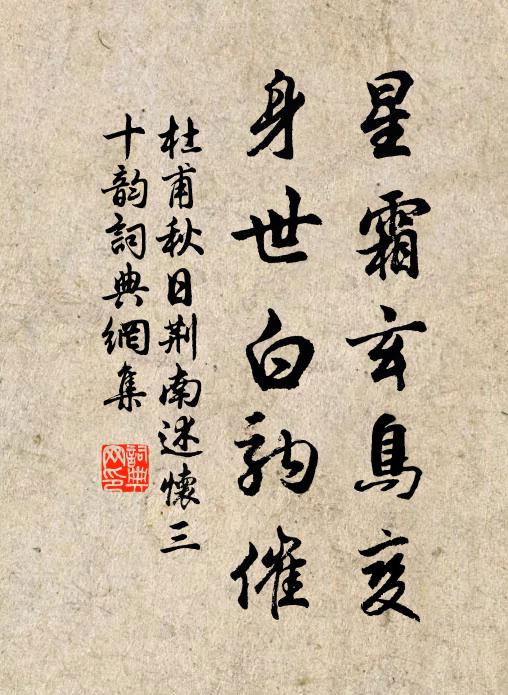 星霜玄鳥变
身世白駒催
杜甫秋日荆南述懷三
十韵詞典網集
詞典网印